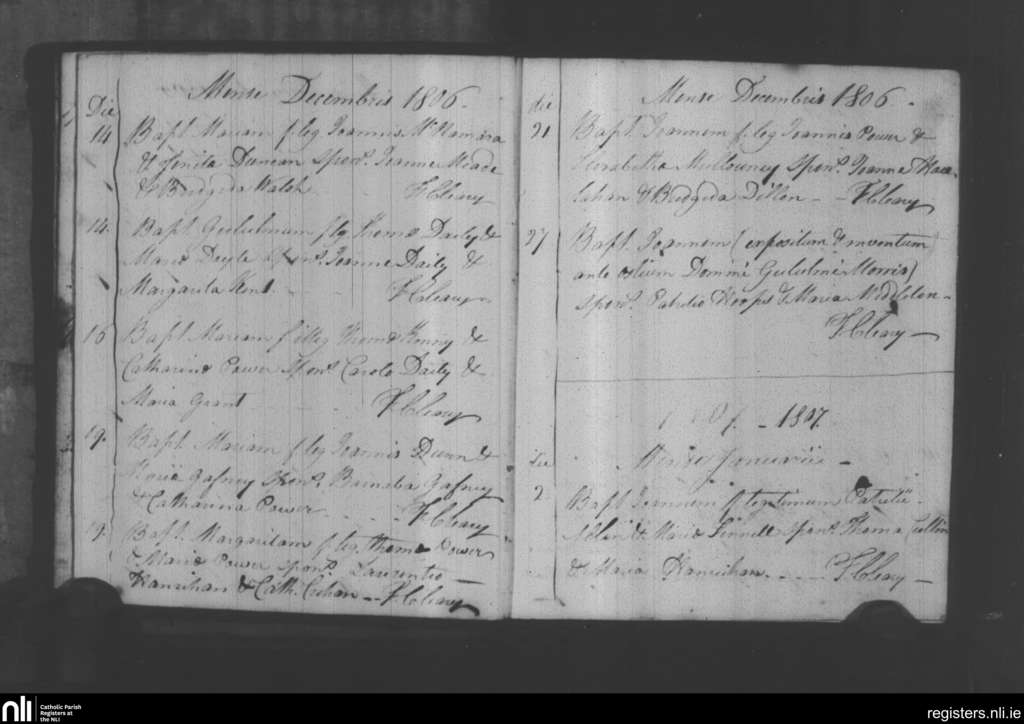 Mense Decembris 1806.
Die
14 Bapt. Mariam f. leg Joannis McNamara
& Duncan Spon. Joanne Meade
& Bridgida Walsh FCleary
14. Bapt Gulielmum f leg Thomæ Daily &
Mariæ Doyle Spon. Joanne Daily &
Margarita Kent. FCleary
16 Bapt Mariam f illeg Thomæ Kenny &
Catharinæ Power Spon. Carolo Daily &
Maria Grant FCleary
19. Bapt. Mariam f leg Joannis Dunn &
Mariæ Gafney Spon. Barnaba Gafney
& Catharina Power FCleary
19. Bapt. Margaritam f leg. Thomæ Power
& Mariæ Power Spon. Laurentio
& Cath. FCleary
Mense Decembris 1806.
die
21 Bapt. Joannem f leg Joannis Power &
Mullowney Spon. Joanne
& Bridgida Dillon FCleary
27 Bapt. Joannem (expositum & inventum
ante ostium Domini Gulielmi Morris)
Spon. Patritio & Maria Middleton
FCleary
1807
Die Mense Januarii
2 Bapt Joannem f legitimum Patritii
& Mariæ Spon. Thoma
& Maria FCleary
nli Catholic Parish
Registers at
the NLI
registers.nli.ie